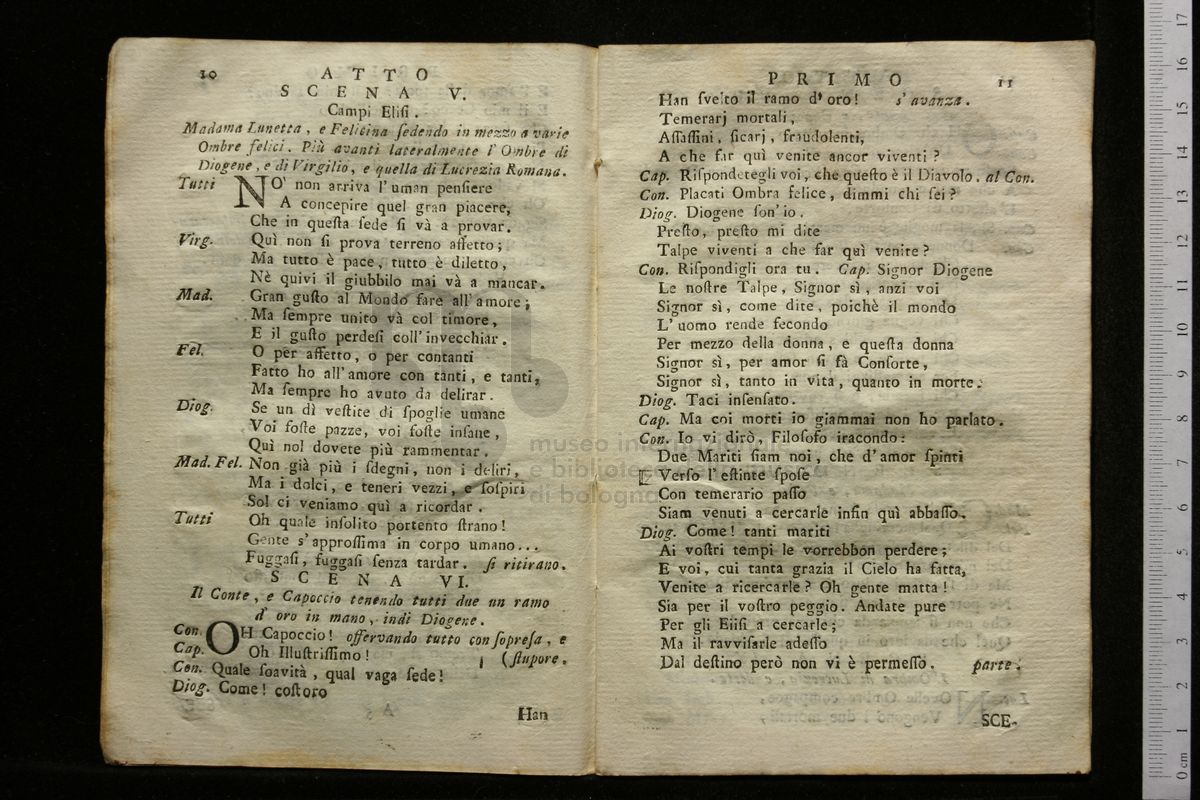 10 ATTO
SCENA V.
Campi Elisi.
Madama Lunetta, e Felicina ſedendo in mezzo a varie
Ombre felici. Più avanti lateralmente l'Ombre di
Diogene, e di Virgilio, e quella di Lucrezia Romana.
Tutti NO' non arriva l'uman penſiere
A concepire quel gran piacere,
Che in queſta ſede ſi và a provar.
Virg. Quì non ſi prova terreno affetto;
Ma tutto è pace, tutto è diletto,
Nè quivi il giubbilo mai và a mancar.
Mad. Gran guſto al Mondo fare all'amore;
Ma ſempre unito và col timore,
E il guſto perdeſi coll'invecchiar.
Fel. O per affetto, o per contanti
Fatto ho all'amore con tanti, e tanti,
Ma ſempre ho avuto da delirar.
Diog. Se un dì veſtite di ſpoglie umane
Voi foſte pazze, voi foſte inſane,
Quì nol dovete più rammentar.
Mad. Fel. Non già più i ſdegni, non i deliri,
Ma i dolci, e teneri vezzi, e ſoſpiri
Sol ci veniamo quì a ricordar.
Tutti Oh quale inſolito portento ſtrano!
Gente s'approſſima in corpo umano...
Fuggaſi, fuggaſi ſenza tardar. ſi ritirano.
SCENA VI.
Il Conte, e Capoccio tenendo tutti due un ramo
d'oro in mano, indi Diogene.
Con. OH Capoccio! oſſervando tutto con ſopreſa, e
Cap. Oh Illuſtriſſimo! (ſtupore.
Con. Quale ſoavità, qual vaga ſede!
Diog. Come! coſtoro
Han
PRIMO 11
Han ſvelto il ramo d'oro! s'avanza.
Temerarj mortali,
Aſſaſſini, ſicarj, fraudolenti,
A che far quì venite ancor viventi?
Cap. Riſpondetegli voi, che queſto è il Diavolo. al Con.
Con. Placati Ombra felice, dimmi chi ſei?
Diog. Diogene ſon'io.
Preſto, preſto mi dite
Talpe viventi a che far quì venite?
Con. Riſpondigli ora tu. Cap. Signor Diogene
Le noſtre Talpe, Signor sì, anzi voi
Signor sì, come dite, poichè il mondo
L'uomo rende fecondo
Per mezzo della donna, e queſta donna
Signor sì, per amor ſi fà Conſorte,
Signor sì, tanto in vita, quanto in morte.
Diog. Taci inſenſato.
Cap. Ma coi morti io giammai non ho parlato.
Con. Io vi dirò, Filoſofo iracondo:
Due Mariti ſiam noi, che d'amor ſpinti
Verſo l'eſtinte ſpoſe
Con temerario paſſo
Siam venuti a cercarle infin quì abbaſſo.
Diog. Come! tanti mariti
Ai voſtri tempi le vorrebbon perdere;
E voi, cui tanta grazia il Cielo ha fatta,
Venite a ricercarle? Oh gente matta!
Sia per il voſtro peggio. Andate pure
Per gli Eliſi a cercarle;
Ma il ravviſarle adeſſo
Dal deſtino però non vi è permeſſo. parte.
SCE-